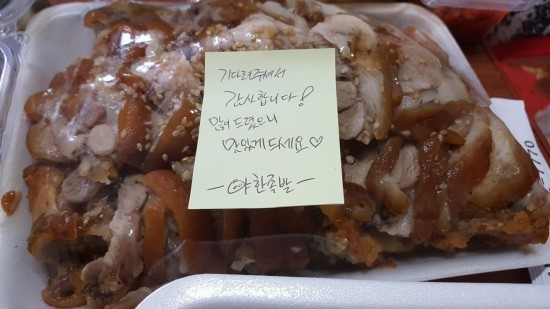 기다려주셔서
감사합니다!
많이 드렸으니
맛있게드세요♡
- 야한족발 -